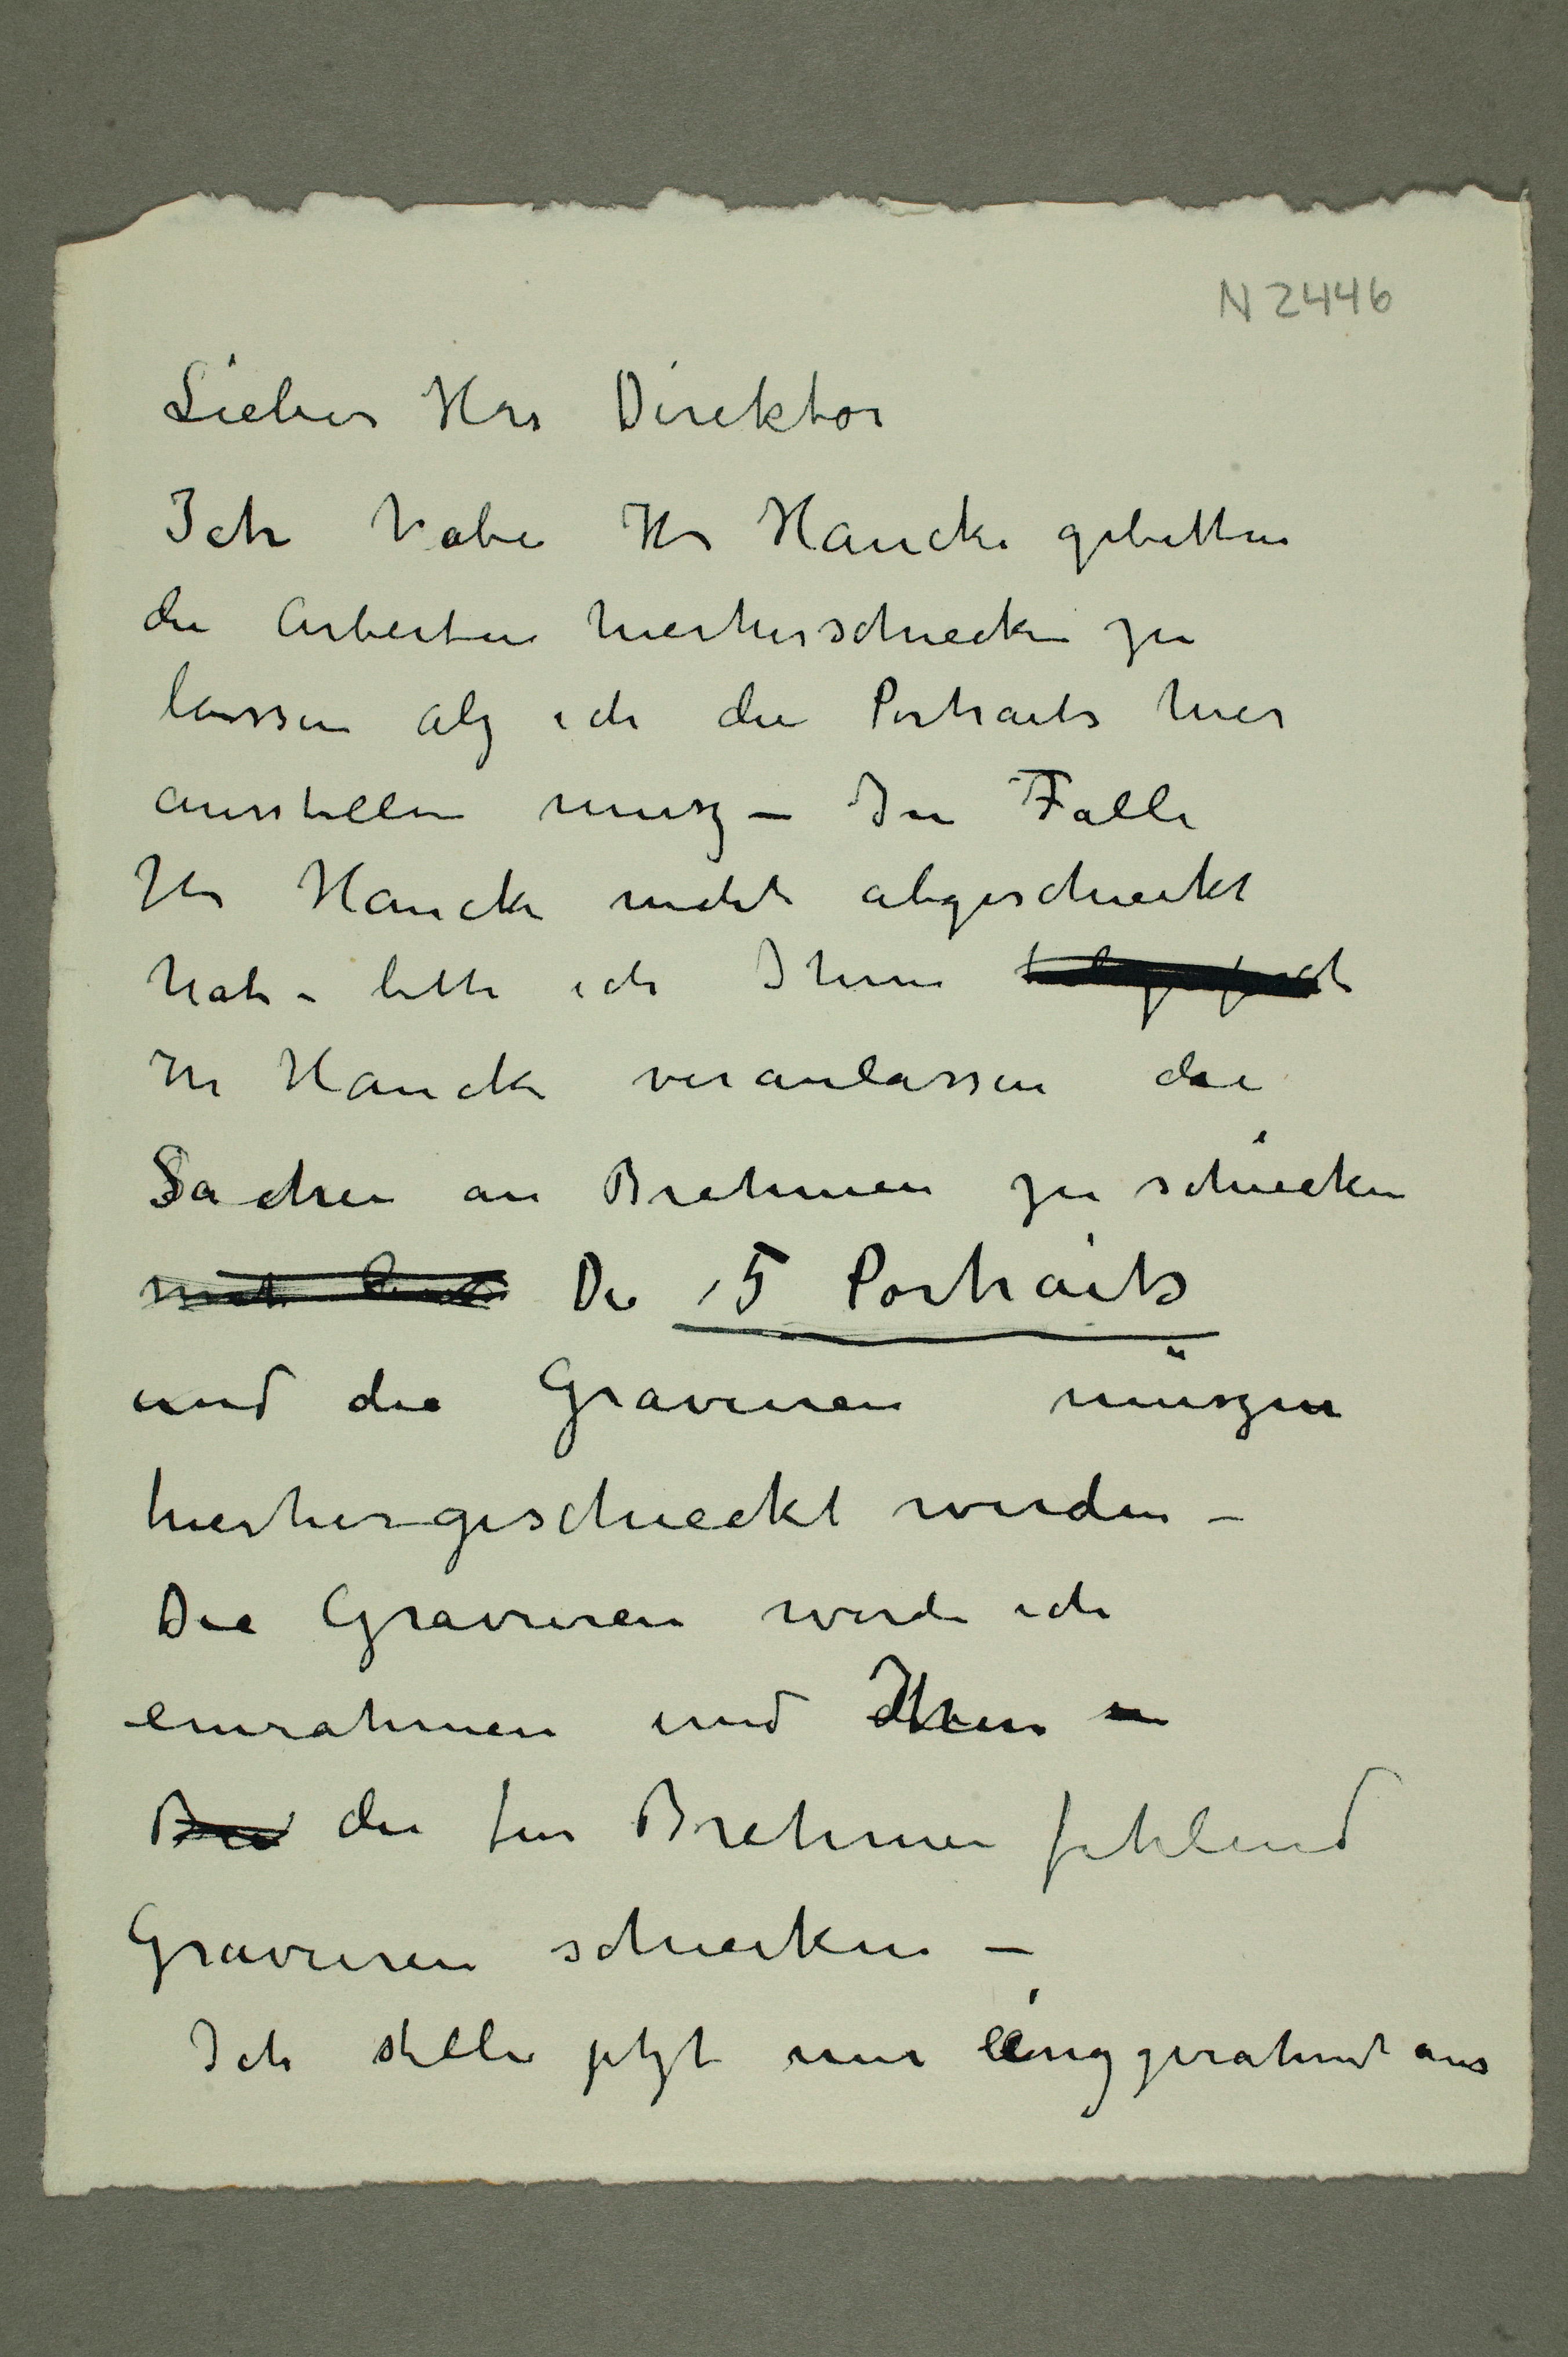 N 2446
Lieber Herr Direktor
Ich habe Hr Haucke gebetten
die Arbeiten hierherschiecken zu
lassen alz ich die Portraits hier
ausstellen musz – In Falle
Hr Haucke nicht abgeschieckt
hat – bitte ich Ihnen
Hr Haucke veranlassen die
Sachen an Brehmen zu schiecken
Die 5 Portraits
und die Gravuren müszen
hierhergeschieckt werden –
Die Gravuren werde ich
einrahmen und Ihnen
die fur Brehmen fehlend
Gravuren schiecken –
Ich stelle jetzt nur einggerahmt aus